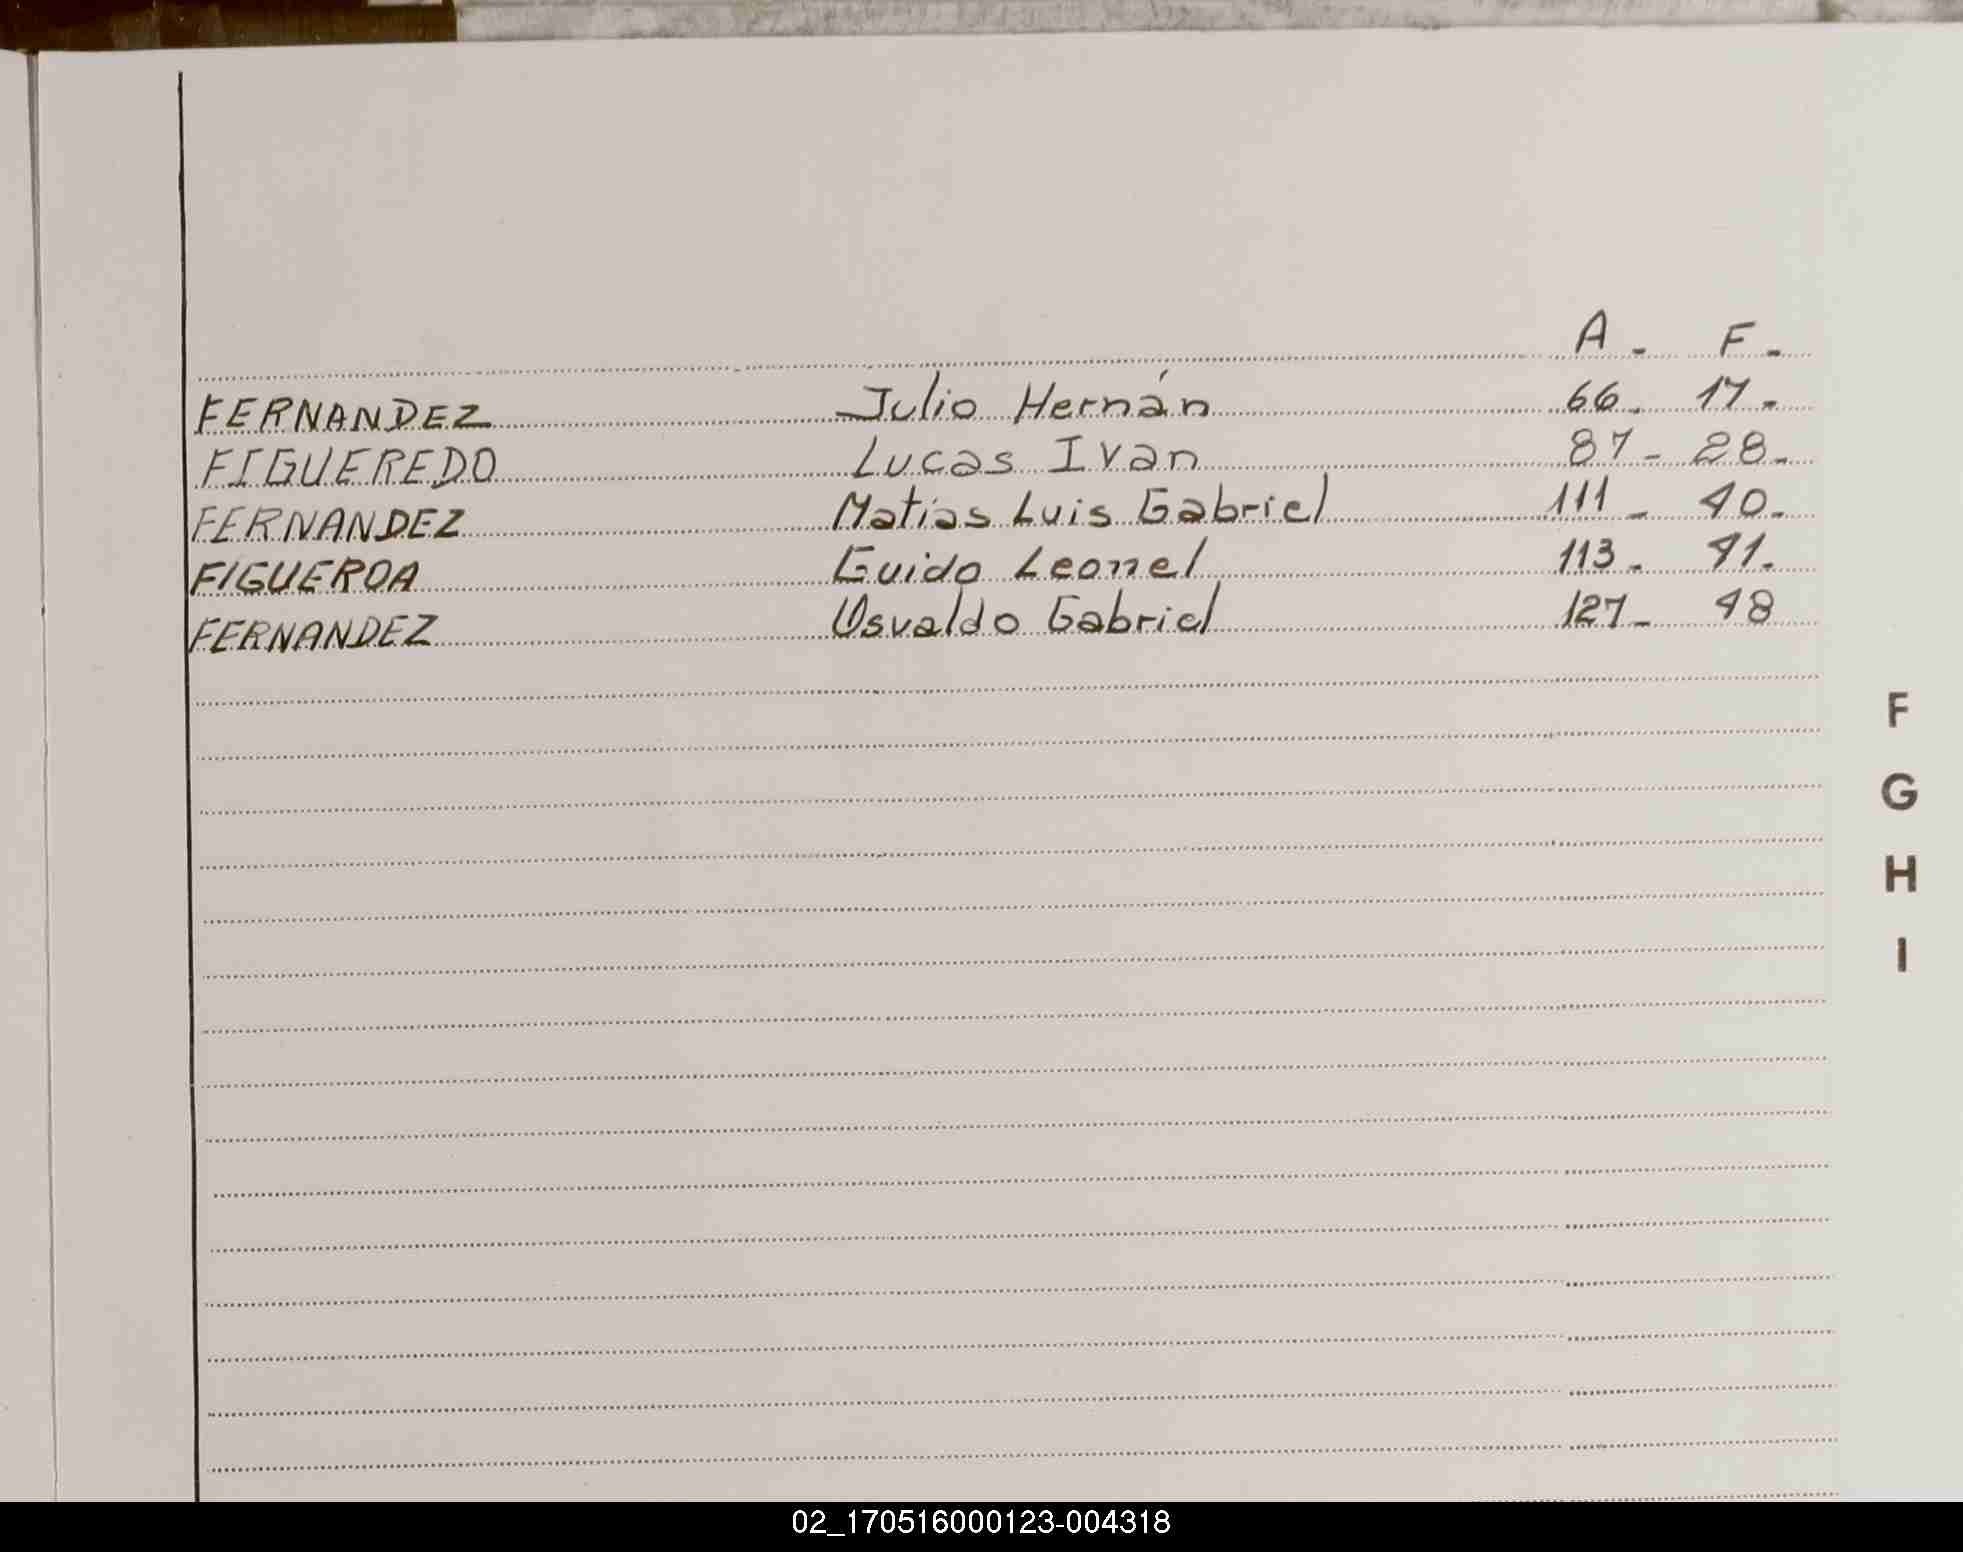 A - F -
FERNANDEZ Julio Hernán 66. 17.
FIGUEREDO Lucas Ivan 87 - 28.
FERNANDEZ Matías Luis Gabriel 111 - 40.
FIGUEROA Guido Leonel 113. 41.
FERNANDEZ Osvaldo Gabriel 127 - 48
F
G
H
I
02_170516000123-004318